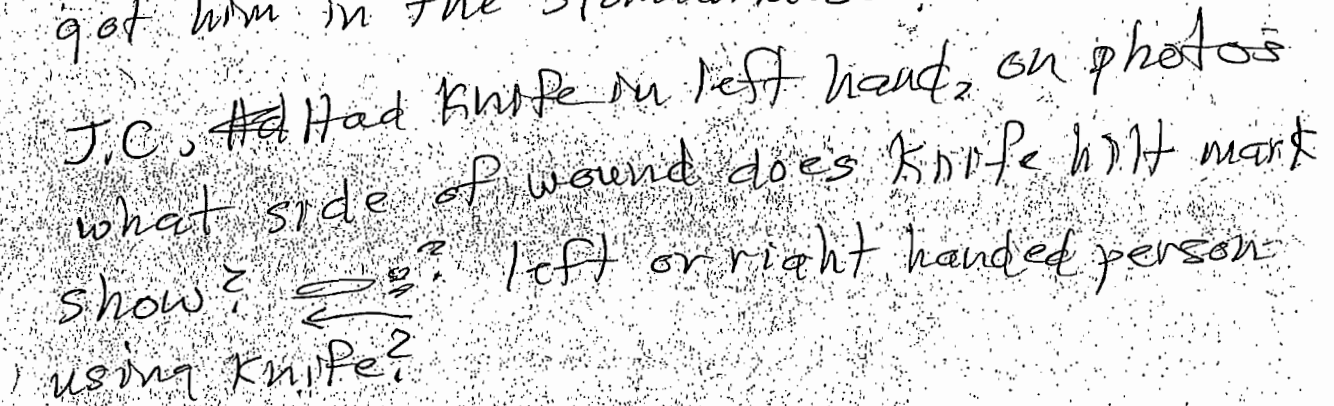 got him in the
J.C. Hd Had Knife in left hand, on photos
what side of wound does Knife hilt mark
show? ? left or right handed person
using Knife?